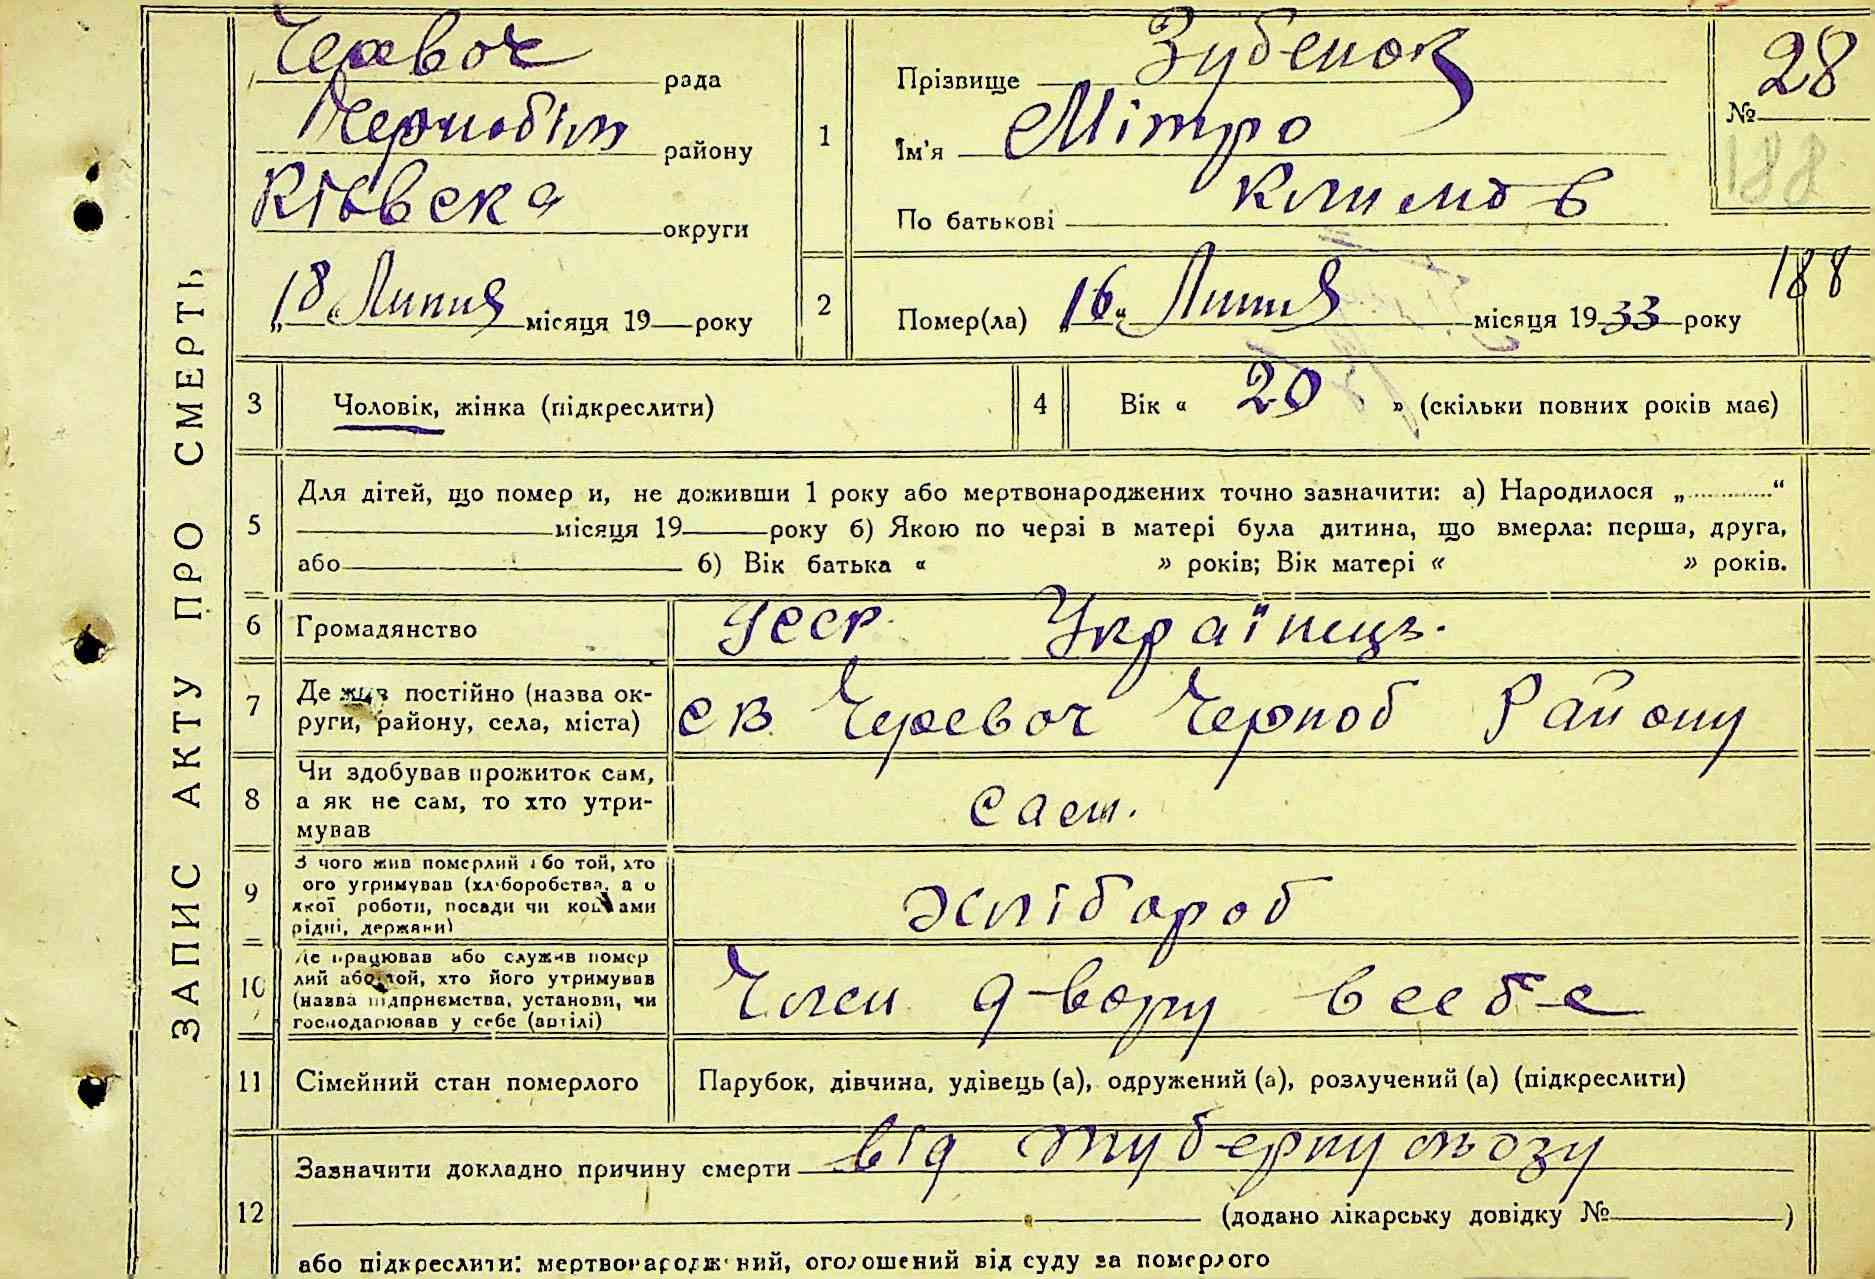 ЗАПИС АКТУ ПРО СМЕРТЬ
Черевоч рада
Чернобіль району
Київска округи
„18“ Липня місяця 19 року
1
Прізвище Зубенок
Ім'я Мітро
По батькові Климов
№ 28
188
2
Помер(ла) „16“ Липня місяця 1933 року
188
3 Чоловік, жінка (підкреслити)
4 Вік « 20 » (скільки повних років має)
5
Для дітей, що помер и, не доживши 1 року або мертвонароджених точно зазначити: а) Народилося „ “
місяця 19 року б) Якою по черзі в матері була дитина, що вмерла: перша, друга,
або б) Вік батька « » років; Вік матері « » років.
6 Громадянство УССР Українець.
7 Де жив постійно (назва ок-
руги, району, села, міста) св. Черевоч Черноб Району
8 Чи здобував прожиток сам,
а як не сам, то хто утри-
мував
сам.
9 З чого жив померлий або той, хто
ого утримував (хліборобства, а о
якої роботи, посади чи коштами
рідні, держави)
хлібороб
10 Де працював або служив помер
лий або той, хто його утримував
(назва підприємства, установи, чи
господарював у себе (артілі)
Член двору всебе
11 Сімейний стан померлого Парубок, дівчина, удівець (а), одружений (а), розлучений (а) (підкреслити)
12
Зазначити докладно причину смерти від туберкульозу
(додано лікарську довідку № )
або підкреслити: мертвонароджений, оголошений від суду за померлого